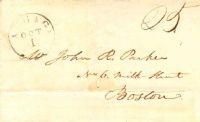 OCT
1
25
Mr John R. Parker
No 6. Milk Street
Boston